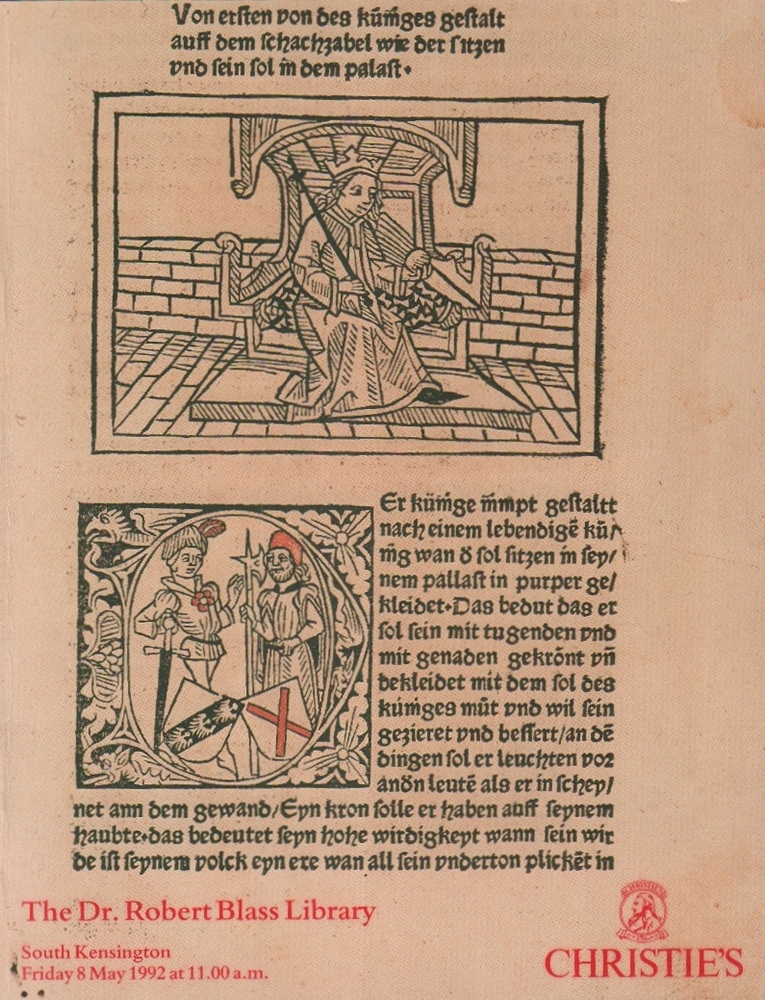 Von ersten von des kům̃ges gestalt
auff dem schachzabel wie der sitzen
vnd sein sol in dem palast·
Er kům̃ge nīmpt gestaltt
nach einem lebendigē ků/
nīg wan d̄ sol sitzen in sey/
nem pallast in purper ge/
kleidet·Das bedut das er
sol sein mit tugenden vnd
mit genaden gekrönt vn̄
bekleidet mit dem sol des
kům̃ges můt vnd wil sein
gezieret vnd bessert/an dē
dingen sol er leuchten vor
andn̄ leutē als er in schey/
net ann dem gewand/Eyn kron solle er haben auff seynem
haubte·das bedeutet seyn hohe wirdigkeyt wann sein wir
de ist seynem volck eyn ere wan all sein vnderton plickēt in
The Dr. Robert Blass Library
South Kensington
Friday 8 May 1992 at 11.00 a.m.
CHRISTIE'S